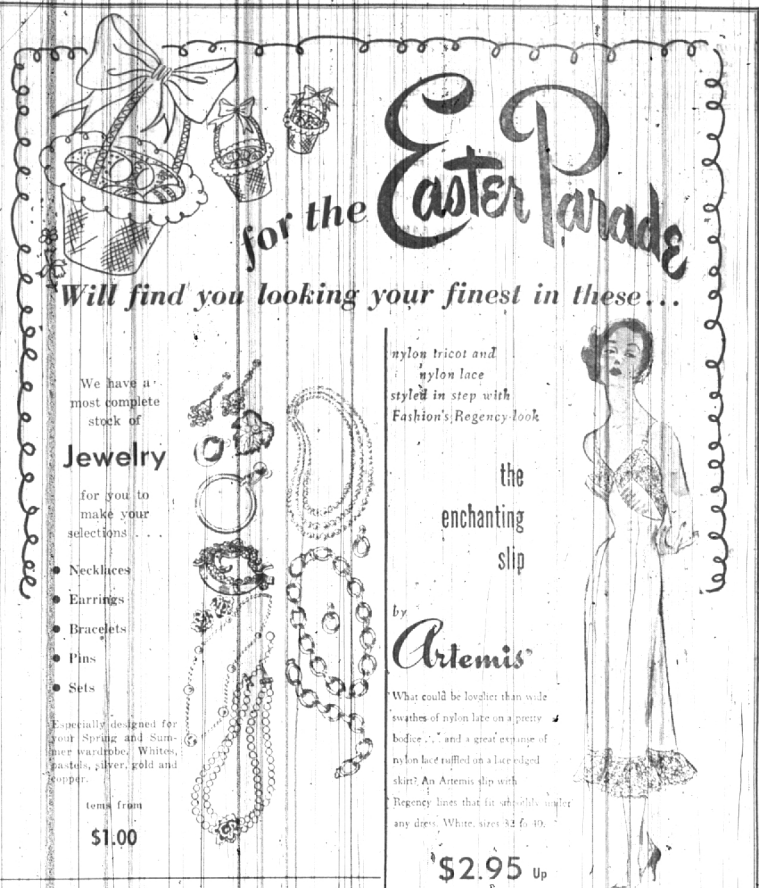 for the Easter Parade
Will find you looking your finest in these...
We have a
most complete
stock of
Jewelry
for you to
make your
selections . . .
• Necklaces
• Earrings
• Bracelets
• Pins
• Sets
Especially designed for
your Spring and Sum-
mer wardrobe. Whites,
pastels, silver, gold and
copper.
tems from
$1.00
nylon tricot and
nylon lace
styled in step with
Fashion's Regency look
the
enchanting
slip
by
Artemis
What could be lovelier than wide
swathes of nylon late on a pretty
bodice . . . and a great expanse of
nylon lace ruffled on a lace edged
skirt? An Artemis slip with
Regency lines that fit under
any dress. White, sizes 32 to 40.
$2.95 Up